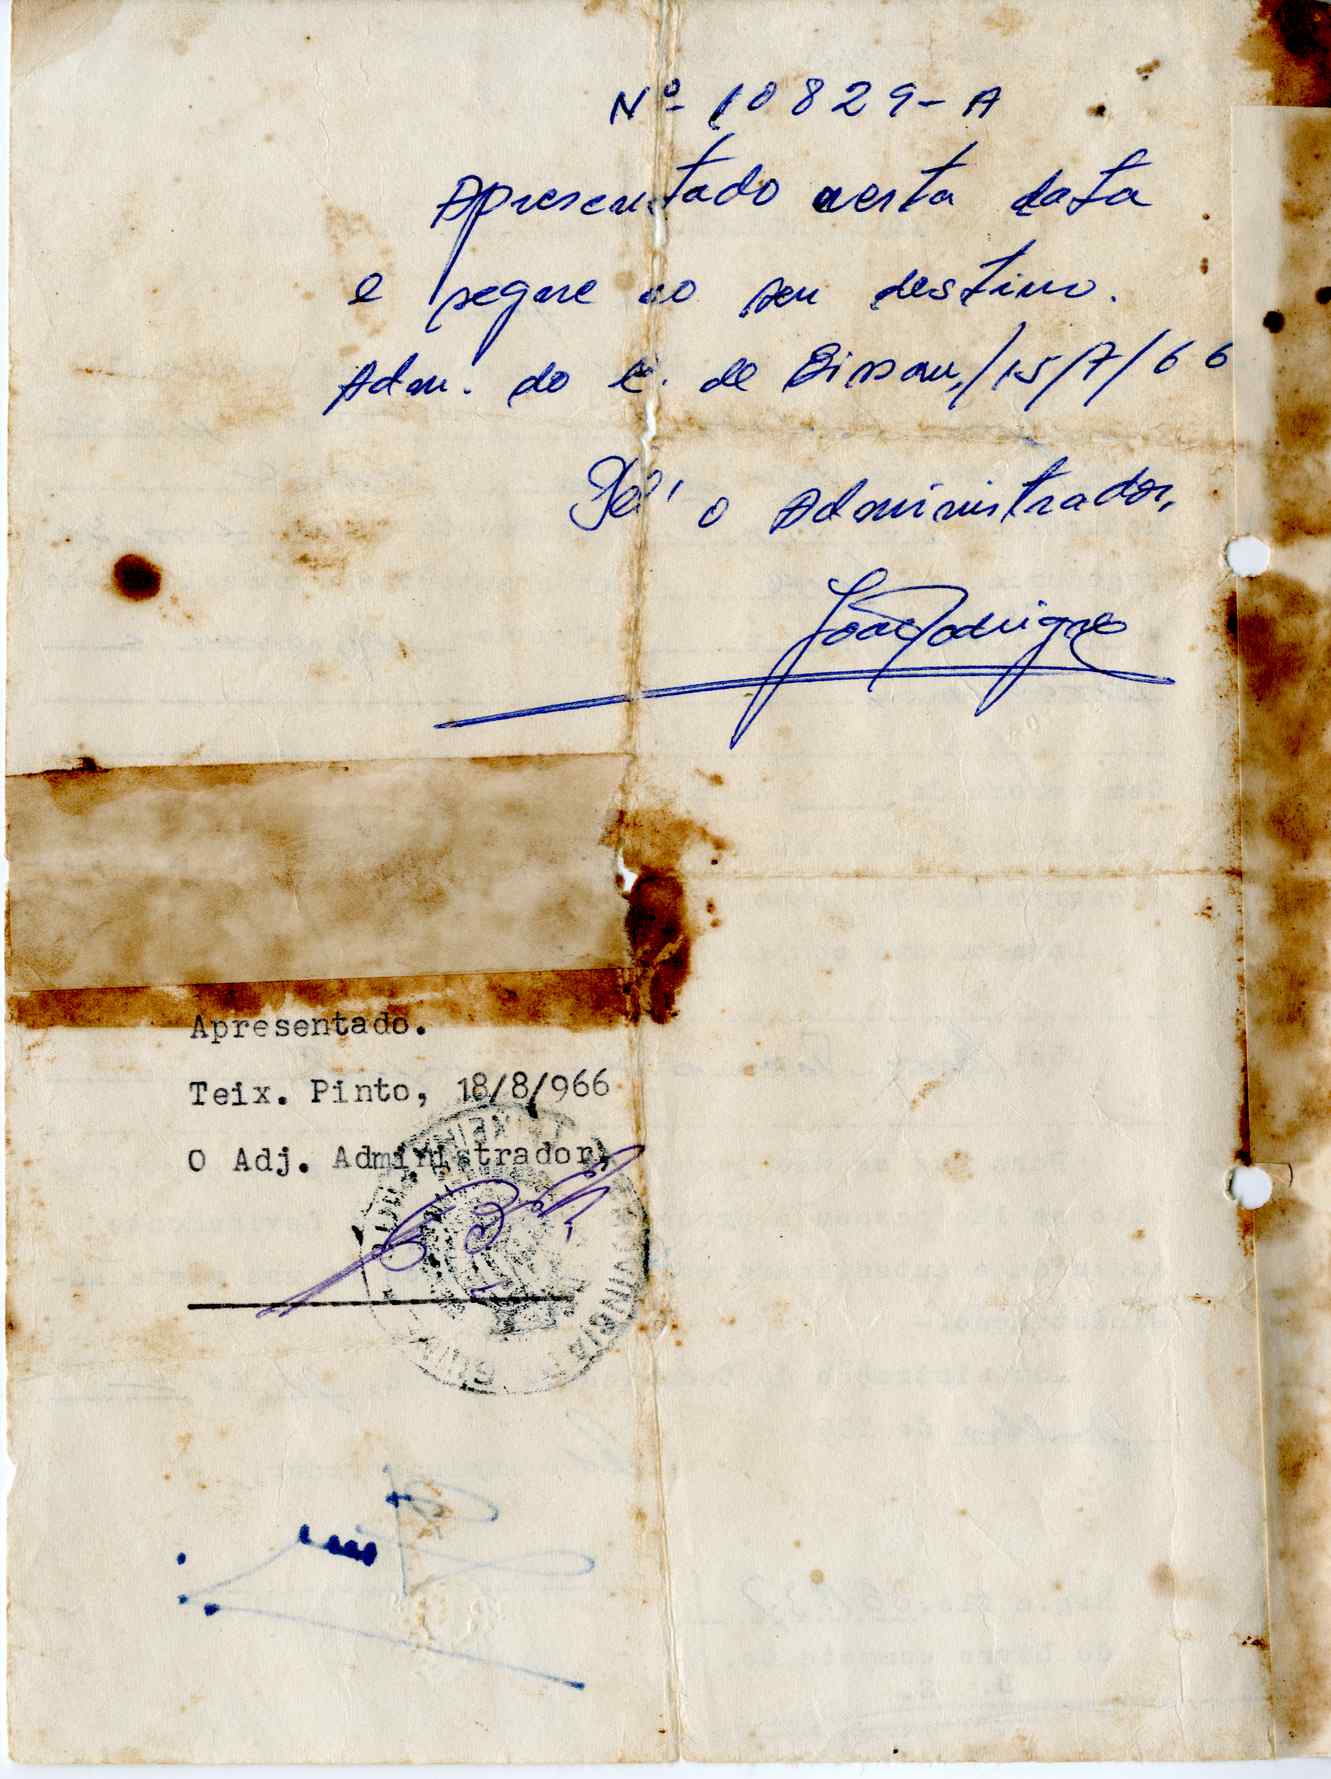 Nº 10829-A
Apresentado nesta data
e segue ao seu destino.
Adm. do C. de Bissau, 15/7/66
Pel' o Administrador,
João Rodrigues
Apresentado.
Teix. Pinto, 18/8/966
O Adj. Administrador,